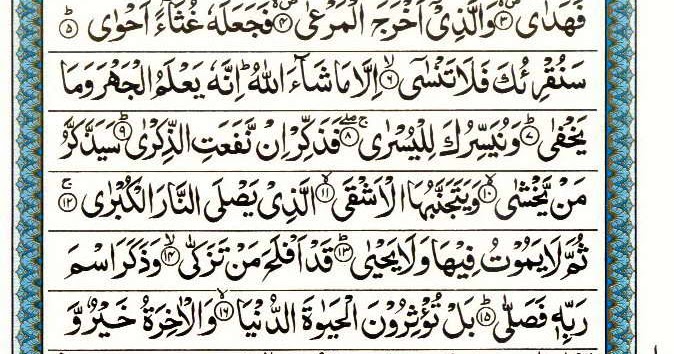 فَهَدٰى ۙ۝۳ وَالَّذِىْۤ اَخْرَجَ الْمَرْعٰى ۙ۝۴ فَجَعَلَهٗ غُثَآءً اَحْوٰى ؕ۝۵
سَنُقْرِئُكَ فَلَا تَنْسٰٓى ۙ۝۶ اِلَّا مَا شَآءَ اللّٰهُ ؕ اِنَّهٗ يَعْلَمُ الْجَهْرَ وَمَا
يَخْفٰى ؕ۝۷ وَنُيَسِّرُكَ لِلْيُسْرٰى ۚۖ۝۸ فَذَكِّرْ اِنْ نَّفَعَتِ الذِّكْرٰى ؕ۝۹ سَيَذَّكَّرُ
مَنْ يَّخْشٰى ۙ۝۱۰ وَيَتَجَنَّبُهَا الْاَشْقَى ۙ۝۱۱ الَّذِىْ يَصْلَى النَّارَ الْكُبْرٰى ۚ۝۱۲
ثُمَّ لَا يَمُوْتُ فِيْهَا وَلَا يَحْيٰى ؕ۝۱۳ قَدْ اَفْلَحَ مَنْ تَزَكّٰى ۙ۝۱۴ وَذَكَرَ اسْمَ
رَبِّهٖ فَصَلّٰى ؕ۝۱۵ بَلْ تُؤْثِرُوْنَ الْحَيٰوةَ الدُّنْيَا ۖ۝۱۶ وَالْاٰخِرَةُ خَيْرٌ وَّ